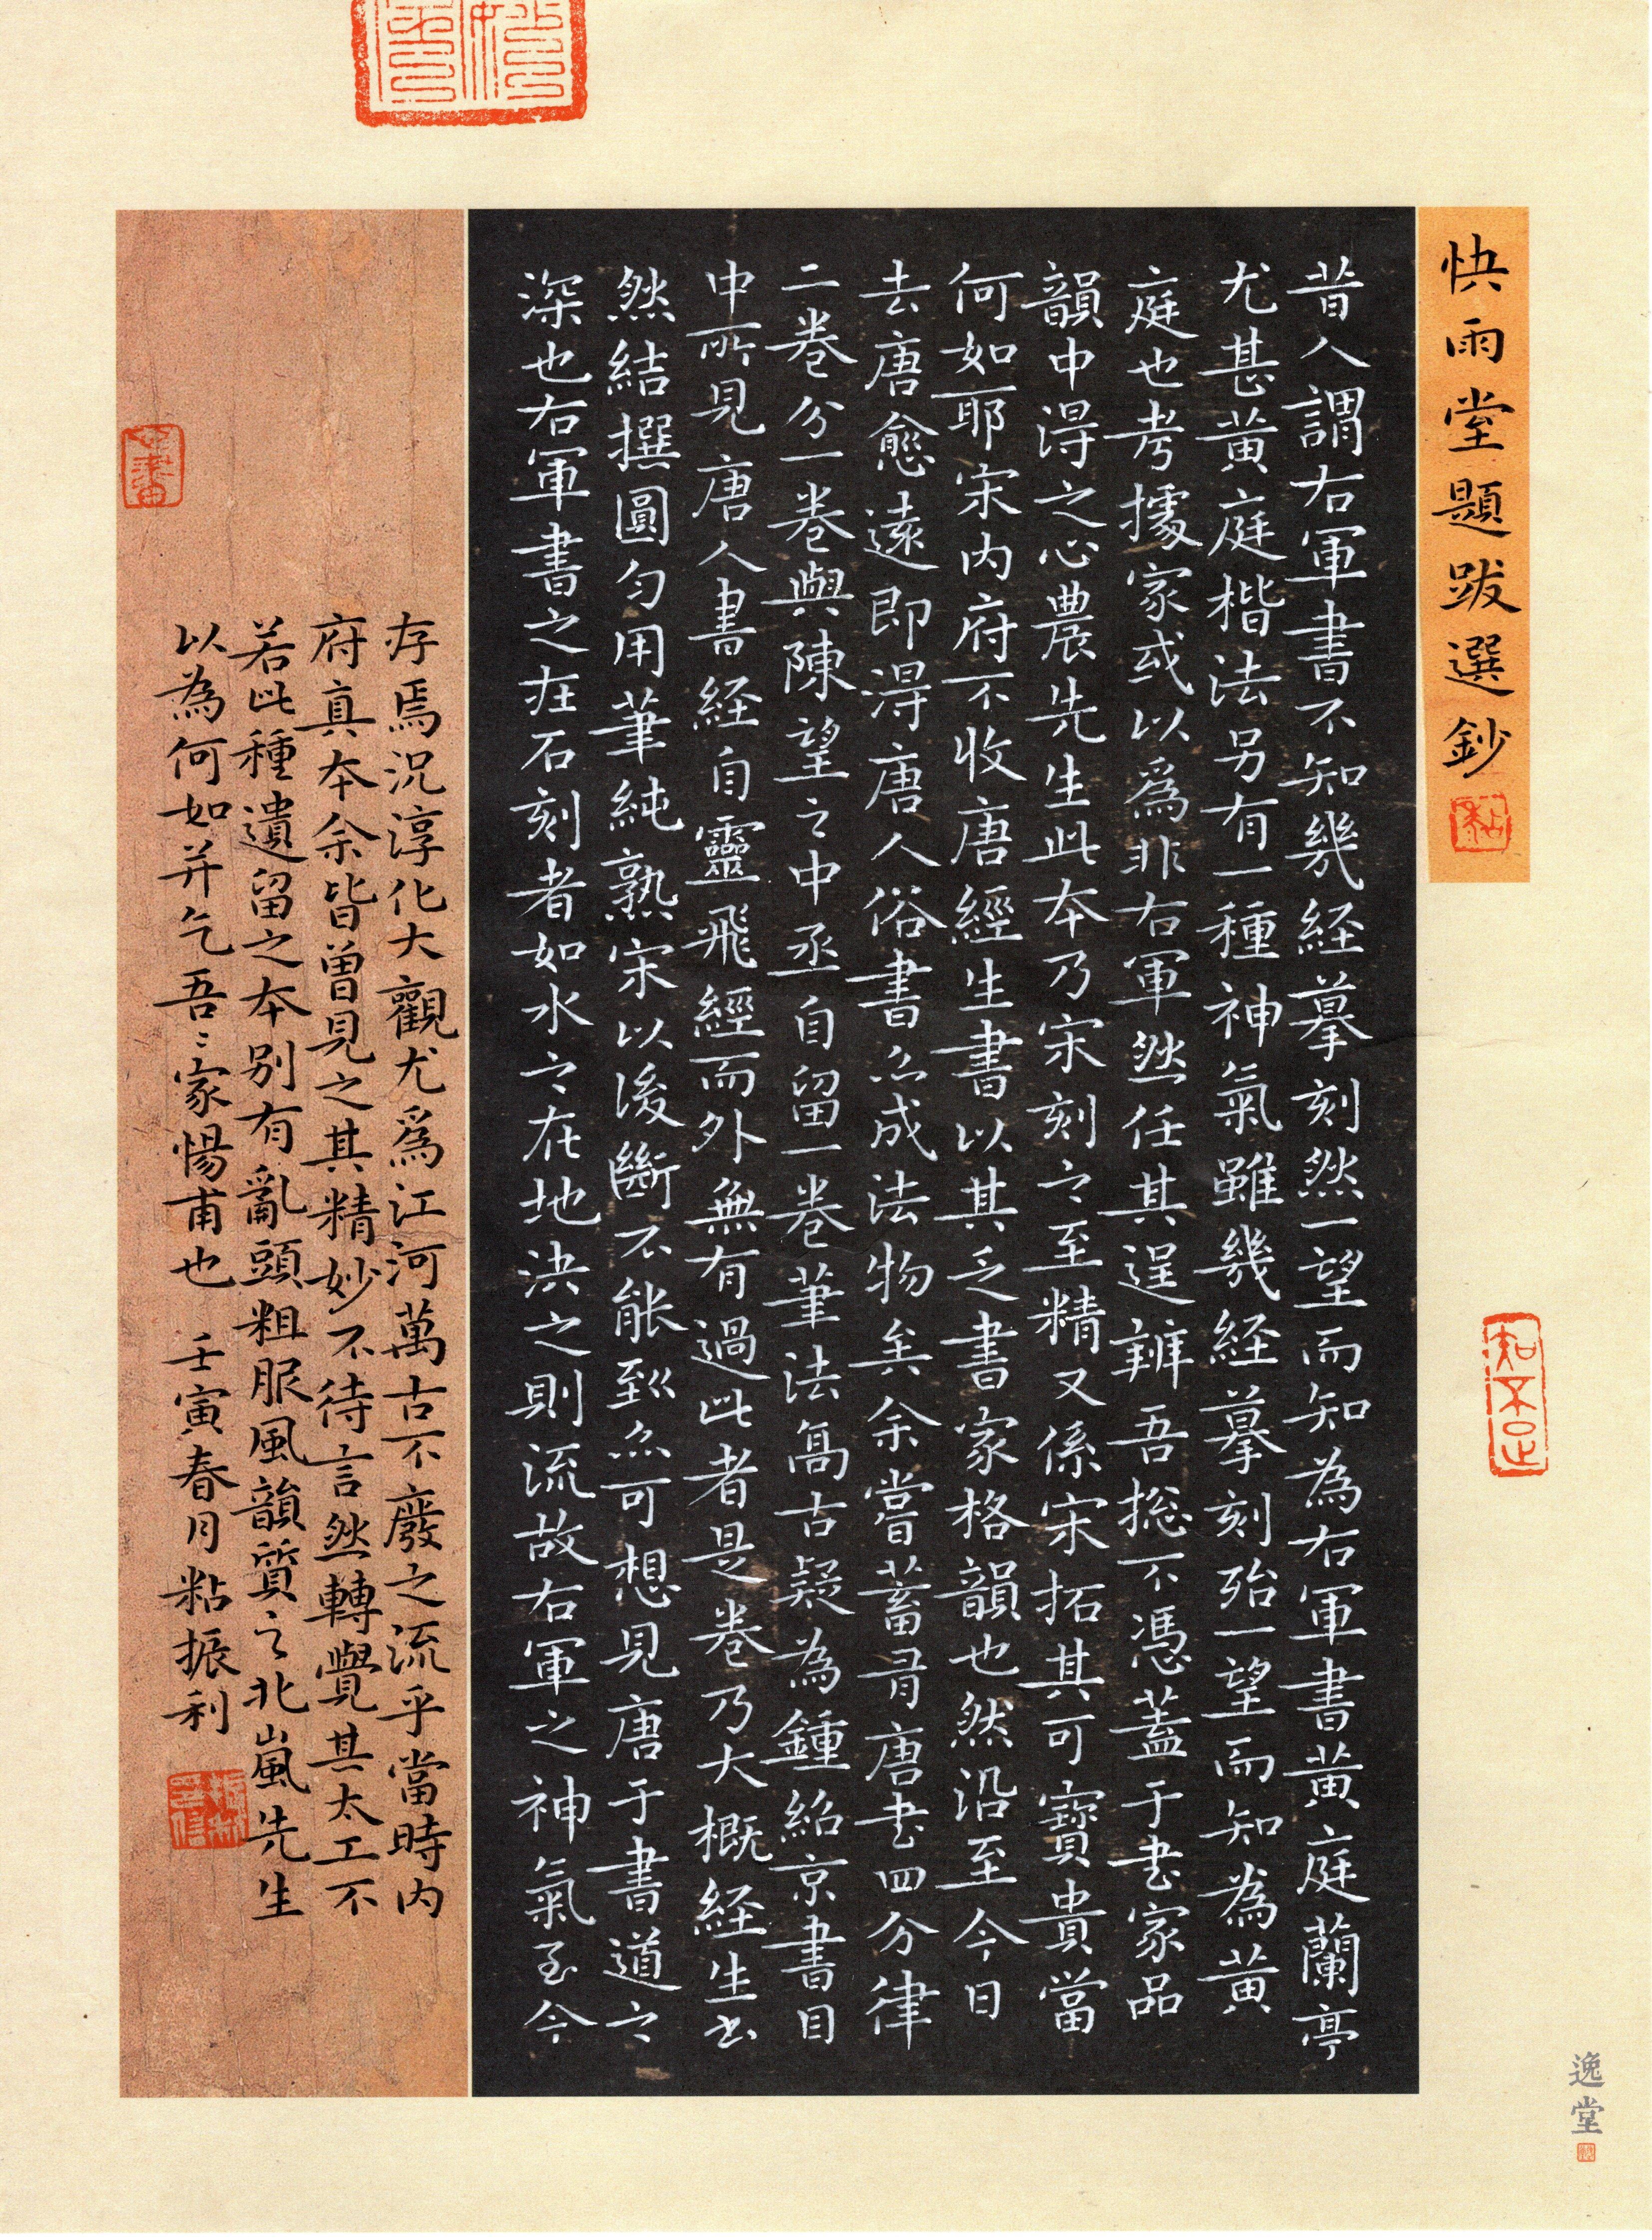 快雨堂題跋選鈔
昔人謂右軍書不知幾经摹刻然一望而知為右軍書黄庭蘭亭
尤甚黄庭楷法另有一種神氣雖幾经摹刻殆一望而知為黄
庭也考據家或以爲非右軍然任其逞辨吾揔不憑蓋于书家品
韻中淂之心農先生此本乃宋刻之至精又係宋拓其可寶貴當
何如耶宋内府不收唐經生書以其乏書家格韻也然沿至今日
去唐愈遠即淂唐人俗書亦成法物矣余嘗蓄有唐书四分律
二卷分一卷與陳望之中丞自留一卷筆法高古疑為鍾紹京書目
中所見唐人書经自靈飛經而外無有過此者是卷乃大概经生书
然結撰圓匀用筆純熟宋以後斷不能到亦可想見唐于書道之
深也右軍書之在石刻者如水之在地决之則流故右軍之神氣至今
存焉况淳化大觀尤爲江河萬古不廢之流乎當時内
府真本余皆曽見之其精妙不待言然轉覺其太工不
若此種遺留之本别有亂頭粗服風韻質之北嵐先生
以為何如并乞吾〻家惕甫也 壬寅春月粘振利
知不足
逸堂